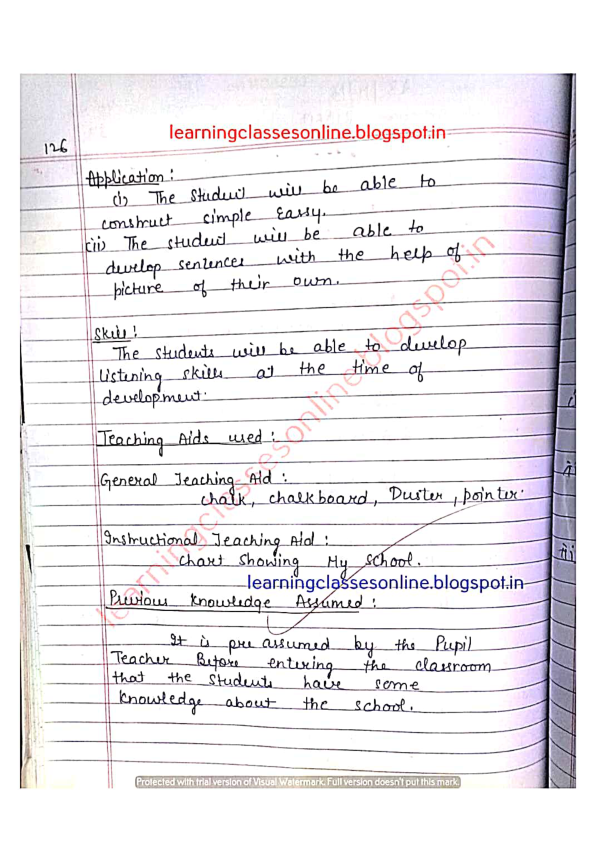 learningclassesonline.blogspot.in
126
Application :
(i) The student will be able to
construct simple Eassy.
(ii) The student will be able to
develop sentences with the help of
picture of their own.
Skill :
The students will be able to develop
Listening skills at the time of
development.
Teaching Aids used :
General Teaching Aid :
Chalk, chalkboard, Duster, pointer.
Instructional Teaching Aid :
Chart Showing My School.
learningclassesonline.blogspot.in
Previous Knowledge Assumed :
It is pre assumed by the Pupil
Teacher Before entering the classroom
that the students have some
knowledge about the school.
learningclassesonline.blogspot.in
Protected with trial version of Visual Watermark. Full version doesn't put this mark.